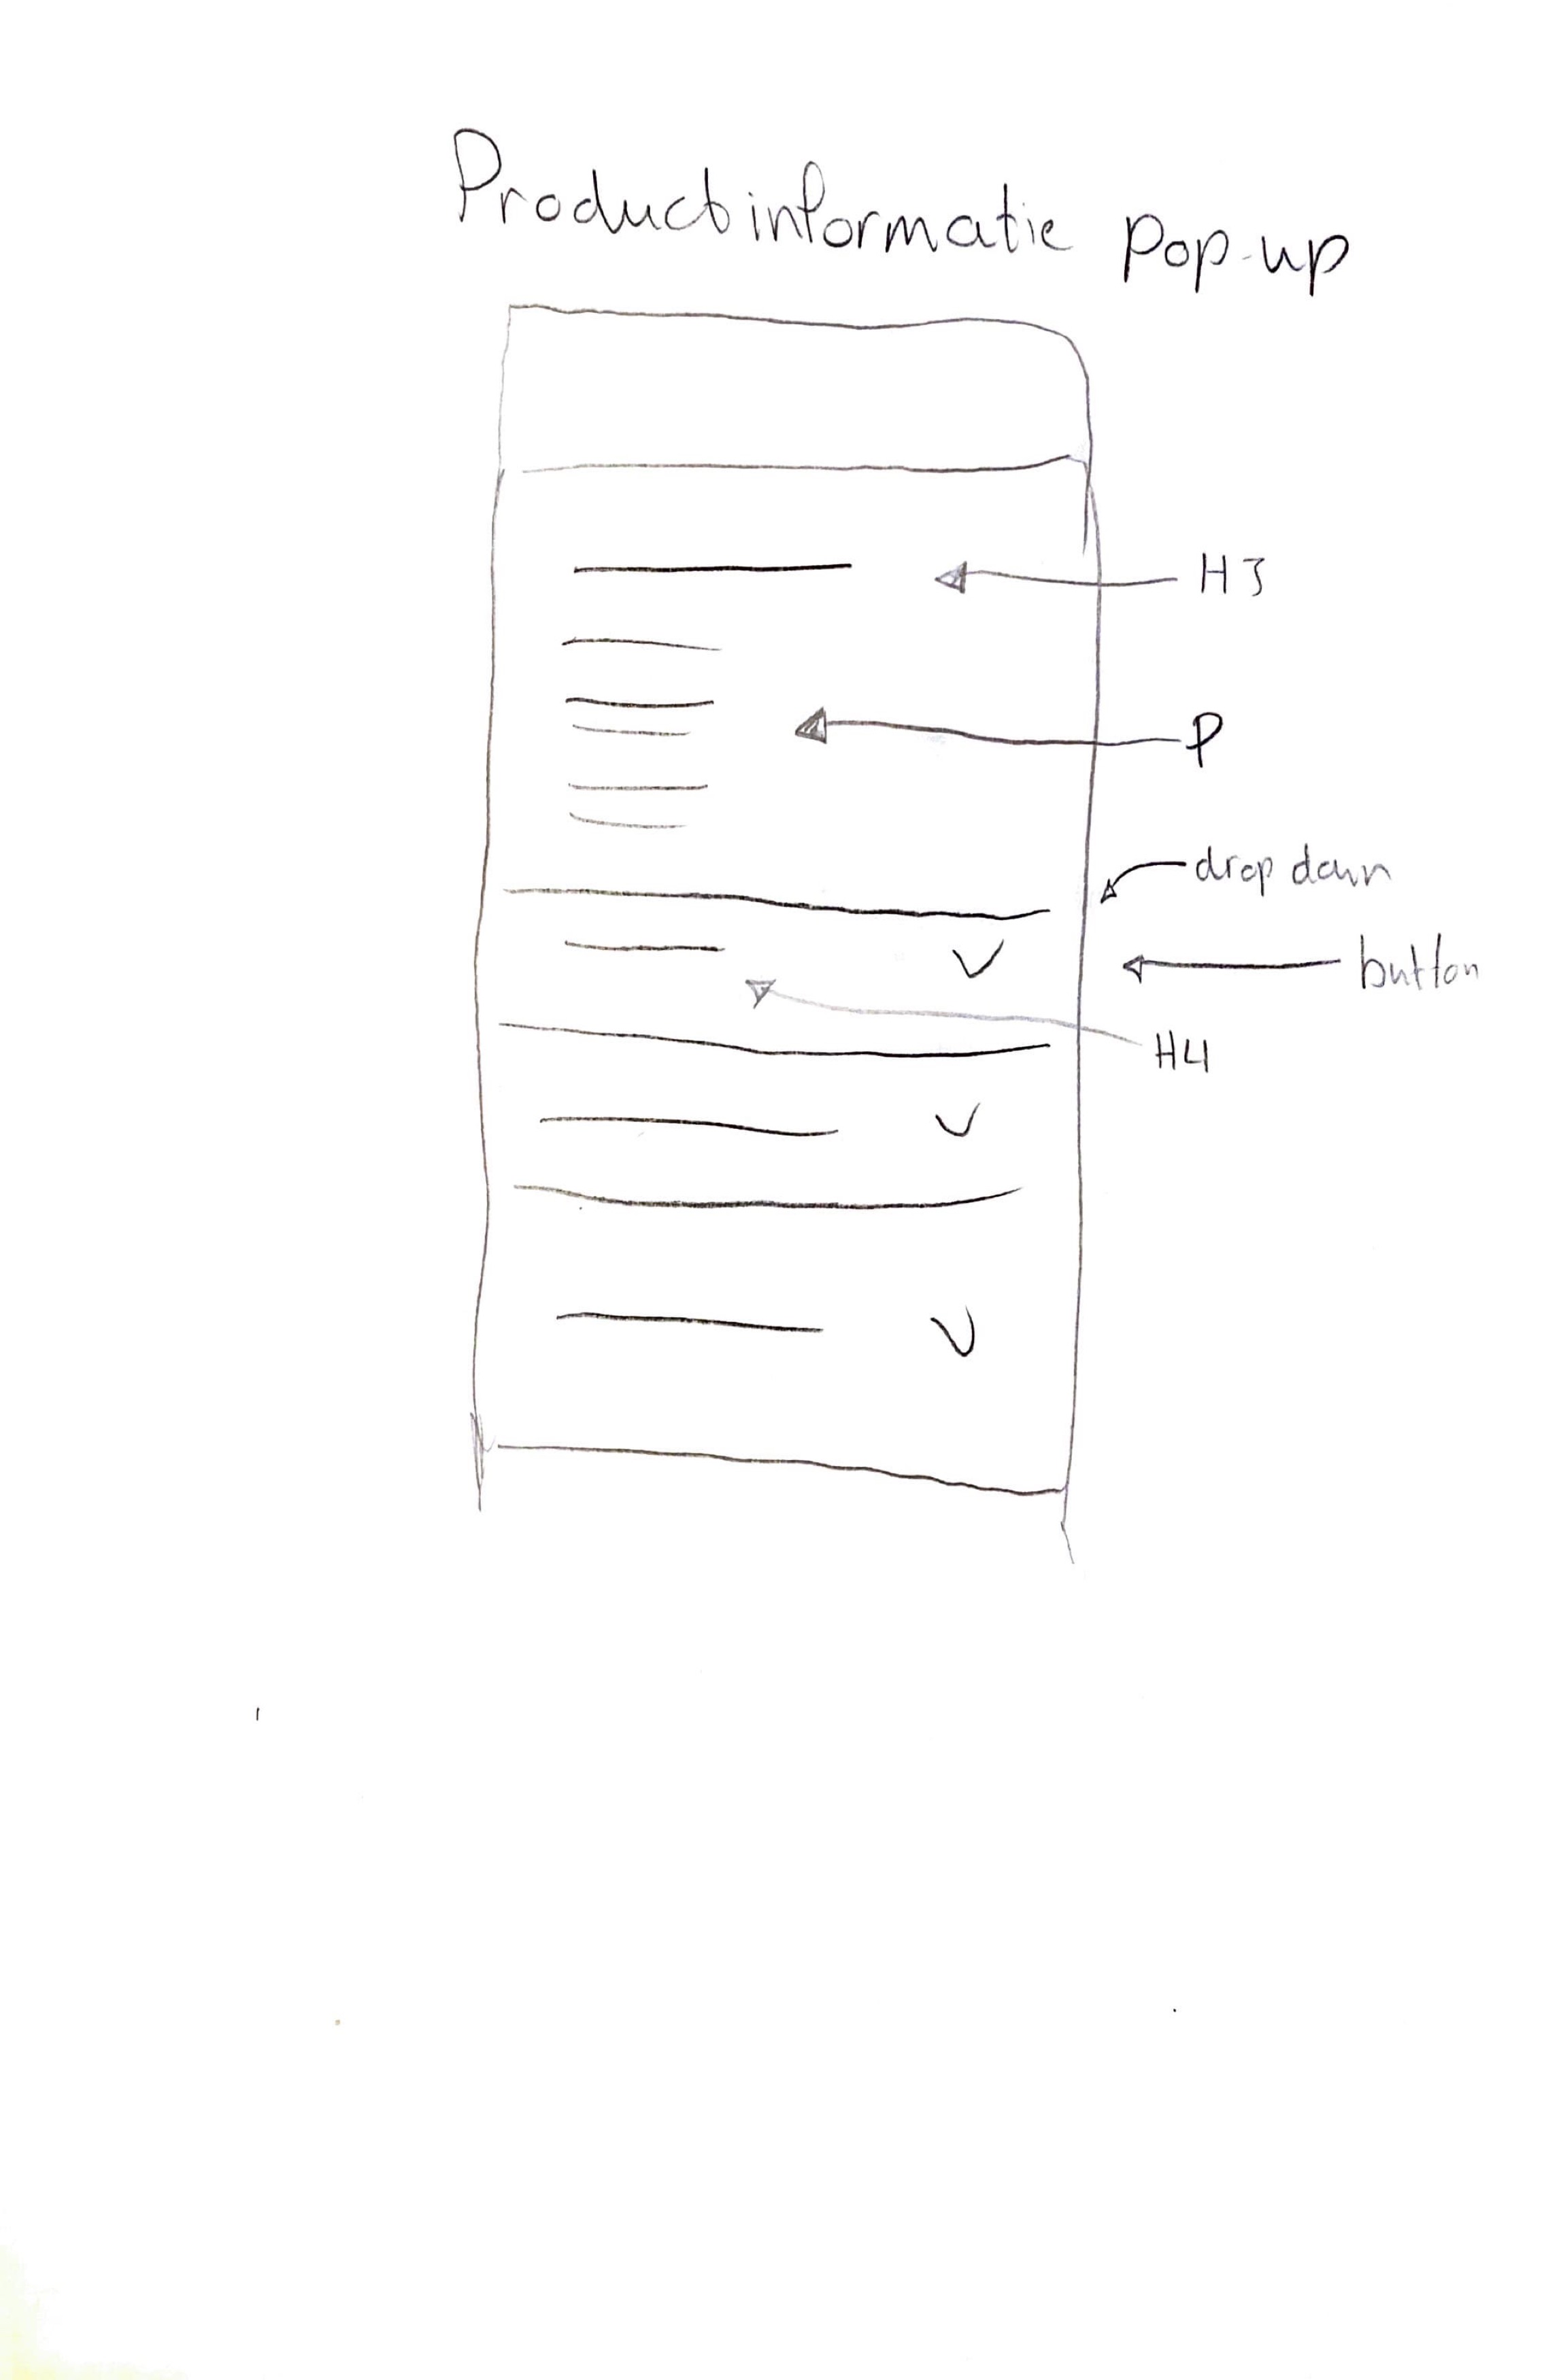 Productinformatie pop-up
H3
P
drop down
button
H4